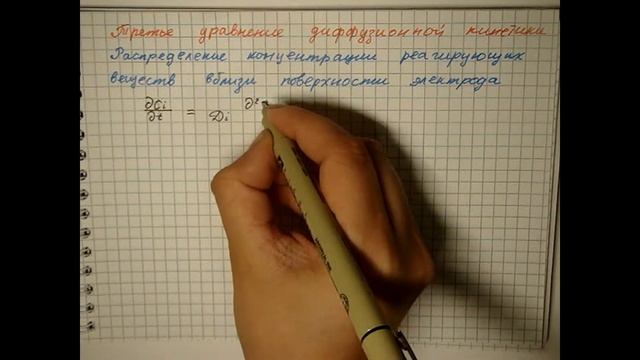 Третье уравнение диффузионной кинетики
Распределение концентрации реагирующих
веществ вблизи поверхности электрода
∂Ci/∂t = Di ∂²